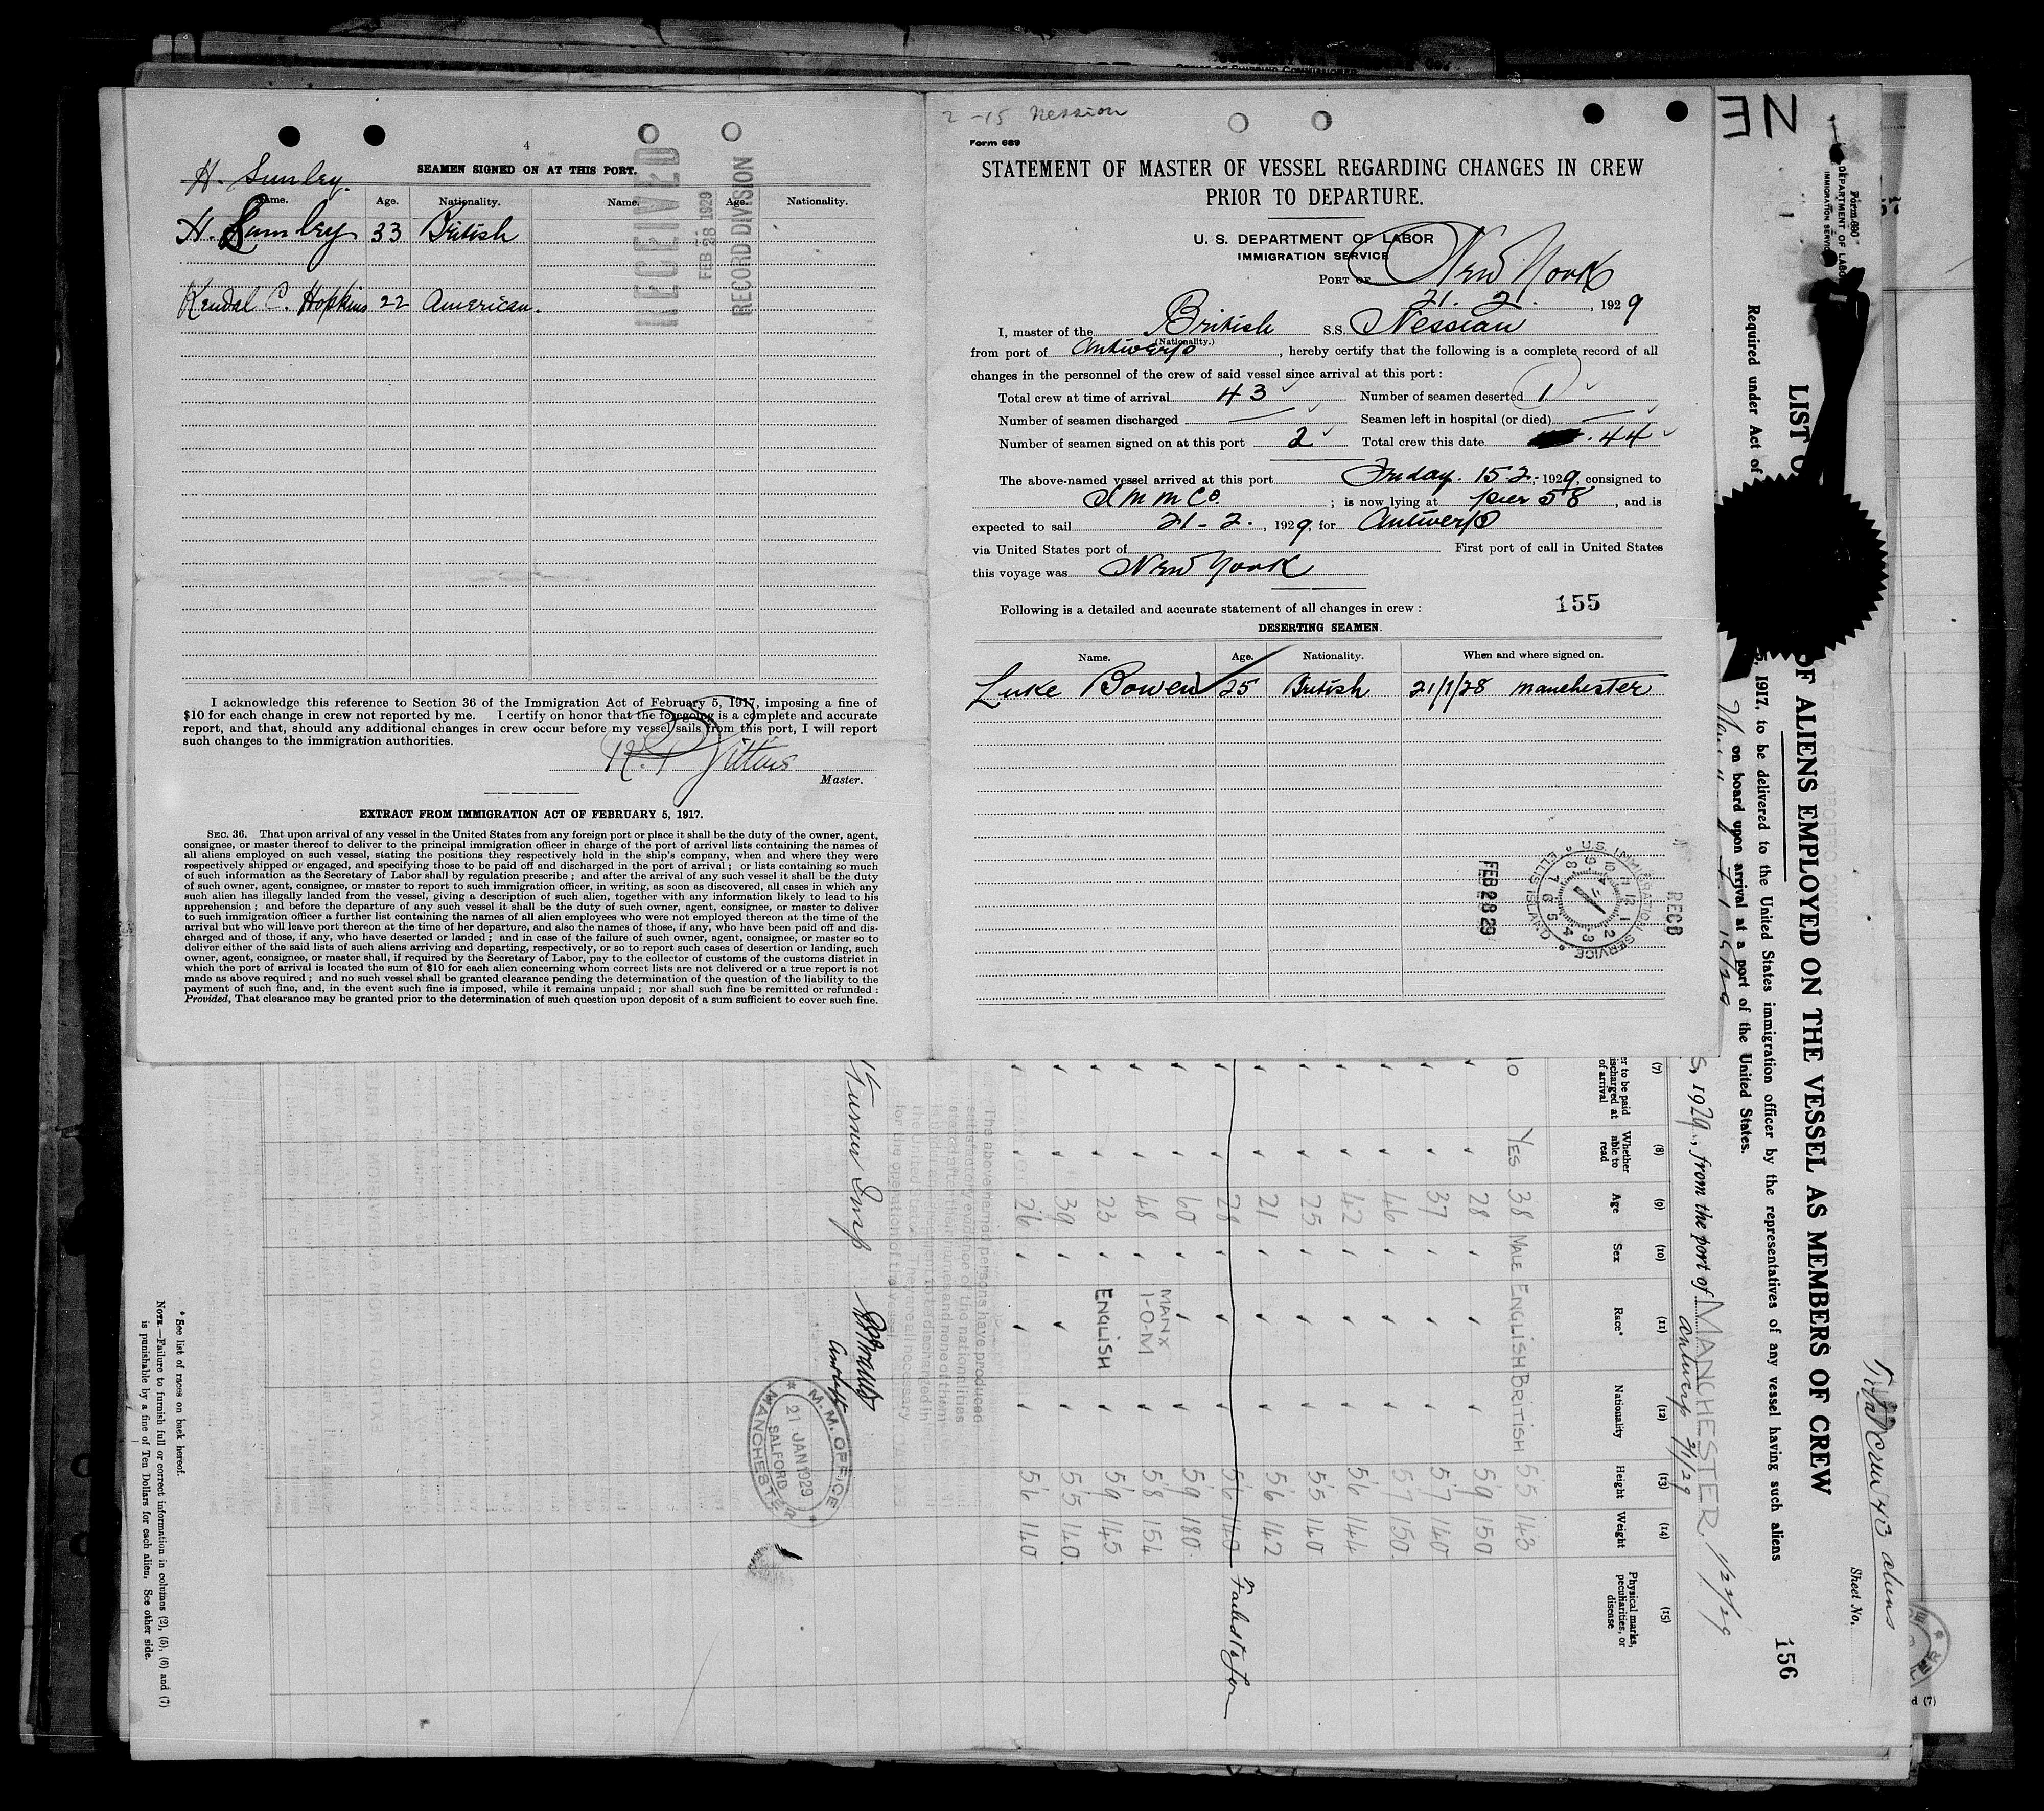 2-15 Nessian
4
SEAMEN SIGNED ON AT THIS PORT.
H. Sumley.
Name. Age. Nationality. Name. Age. Nationality.
H. Sumley 33 British
Kendal C. Hopkins 22 American.
RECEIVED
FEB 28 1929
RECORD DIVISION
I acknowledge this reference to Section 36 of the Immigration Act of February 5, 1917, imposing a fine of
$10 for each change in crew not reported by me. I certify on honor that the foregoing is a complete and accurate
report, and that, should any additional changes in crew occur before my vessel sails from this port, I will report
such changes to the immigration authorities.
Master.
EXTRACT FROM IMMIGRATION ACT OF FEBRUARY 5, 1917.
SEC. 36. That upon arrival of any vessel in the United States from any foreign port or place it shall be the duty of the owner, agent,
consignee, or master thereof to deliver to the principal immigration officer in charge of the port of arrival lists containing the names of
all aliens employed on such vessel, stating the positions they respectively hold in the ship's company, when and where they were
respectively shipped or engaged, and specifying those to be paid off and discharged in the port of arrival; or lists containing so much
of such information as the Secretary of Labor shall by regulation prescribe; and after the arrival of any such vessel it shall be the duty
of such owner, agent, consignee, or master to report to such immigration officer, in writing, as soon as discovered, all cases in which any
such alien has illegally landed from the vessel, giving a description of such alien, together with any information likely to lead to his
apprehension; and before the departure of any such vessel it shall be the duty of such owner, agent, consignee, or master to deliver
to such immigration officer a further list containing the names of all alien employees who were not employed thereon at the time of the
arrival but who will leave port thereon at the time of her departure, and also the names of those, if any, who have been paid off and dis-
charged and of those, if any, who have deserted or landed; and in case of the failure of such owner, agent, consignee, or master so to
deliver either of the said lists of such aliens arriving and departing, respectively, or so to report such cases of desertion or landing, such
owner, agent, consignee, or master shall, if required by the Secretary of Labor, pay to the collector of customs of the customs district in
which the port of arrival is located the sum of $10 for each alien concerning whom correct lists are not delivered or a true report is not
made as above required; and no such vessel shall be granted clearance pending the determination of the question of the liability to the
payment of such fine, and, in the event such fine is imposed, while it remains unpaid; nor shall such fine be remitted or refunded:
Provided, That clearance may be granted prior to the determination of such question upon deposit of a sum sufficient to cover such fine.
Form 689
STATEMENT OF MASTER OF VESSEL REGARDING CHANGES IN CREW
PRIOR TO DEPARTURE.
U. S. DEPARTMENT OF LABOR
IMMIGRATION SERVICE
PORT OF New York
21. 21., 1929
I, master of the British S.S. Nessian
(Nationality.)
from port of Antwerp, hereby certify that the following is a complete record of all
changes in the personnel of the crew of said vessel since arrival at this port:
Total crew at time of arrival 43 Number of seamen deserted 1
Number of seamen discharged — Seamen left in hospital (or died) —
Number of seamen signed on at this port 2 Total crew this date 44
The above-named vessel arrived at this port Friday. 15-2, 1929, consigned to
I M M Co. ; is now lying at Pier 58, and is
expected to sail 21-2., 1929, for Antwerp
via United States port of First port of call in United States
this voyage was New York
Following is a detailed and accurate statement of all changes in crew: 155
DESERTING SEAMEN.
Name. Age. Nationality. When and where signed on.
Luke Bowen 25 British 21/1/28 Manchester
FEB 28 29
U.S. IMMIGRATION SERVICE ELLIS ISLAND
RECD
NE
Form 690
DEPARTMENT OF LABOR
IMMIGRATION SERVICE
Total Crew 43 aliens
Sheet No.
156
LIST OF ALIENS EMPLOYED ON THE VESSEL AS MEMBERS OF CREW
Required under Act of 5, 1917, to be delivered to the United States immigration officer by the representatives of any vessel having such aliens
on board upon arrival at a port of the United States.
s, 1929, from the port of MANCHESTER 1/22/29
Antwerp 31/1/29
(7) (8) (9) (10) (11) (12) (13) (14) (15)
er to be paid
discharged at
of arrival
Whether
able to
read
Age
Sex
Race*
Nationality
Height
Weight
Physical marks,
peculiarities, or
disease
YES 38 MALE ENGLISH BRITISH 5'5 143
28 5'9 150
37 5'7 140
46 5'7 150
42 5'6 144
25 5'5 140
21 5'6 142
28 5'6 140 Failed to Join
60 5'9 180
48 MANX I-O-M 5'8 154
23 ENGLISH 5'9 145
39 5'5 140
26 5'6 140
The above named persons have produced
M. M. OFFICE
21 JAN 1929
SALFORD
MANCHESTER
* See list of races on back hereof.
NOTE.—Failure to furnish full or correct information in columns (2), (5), (6) and (7)
is punishable by a fine of Ten Dollars for each alien. See other side.
d (7)